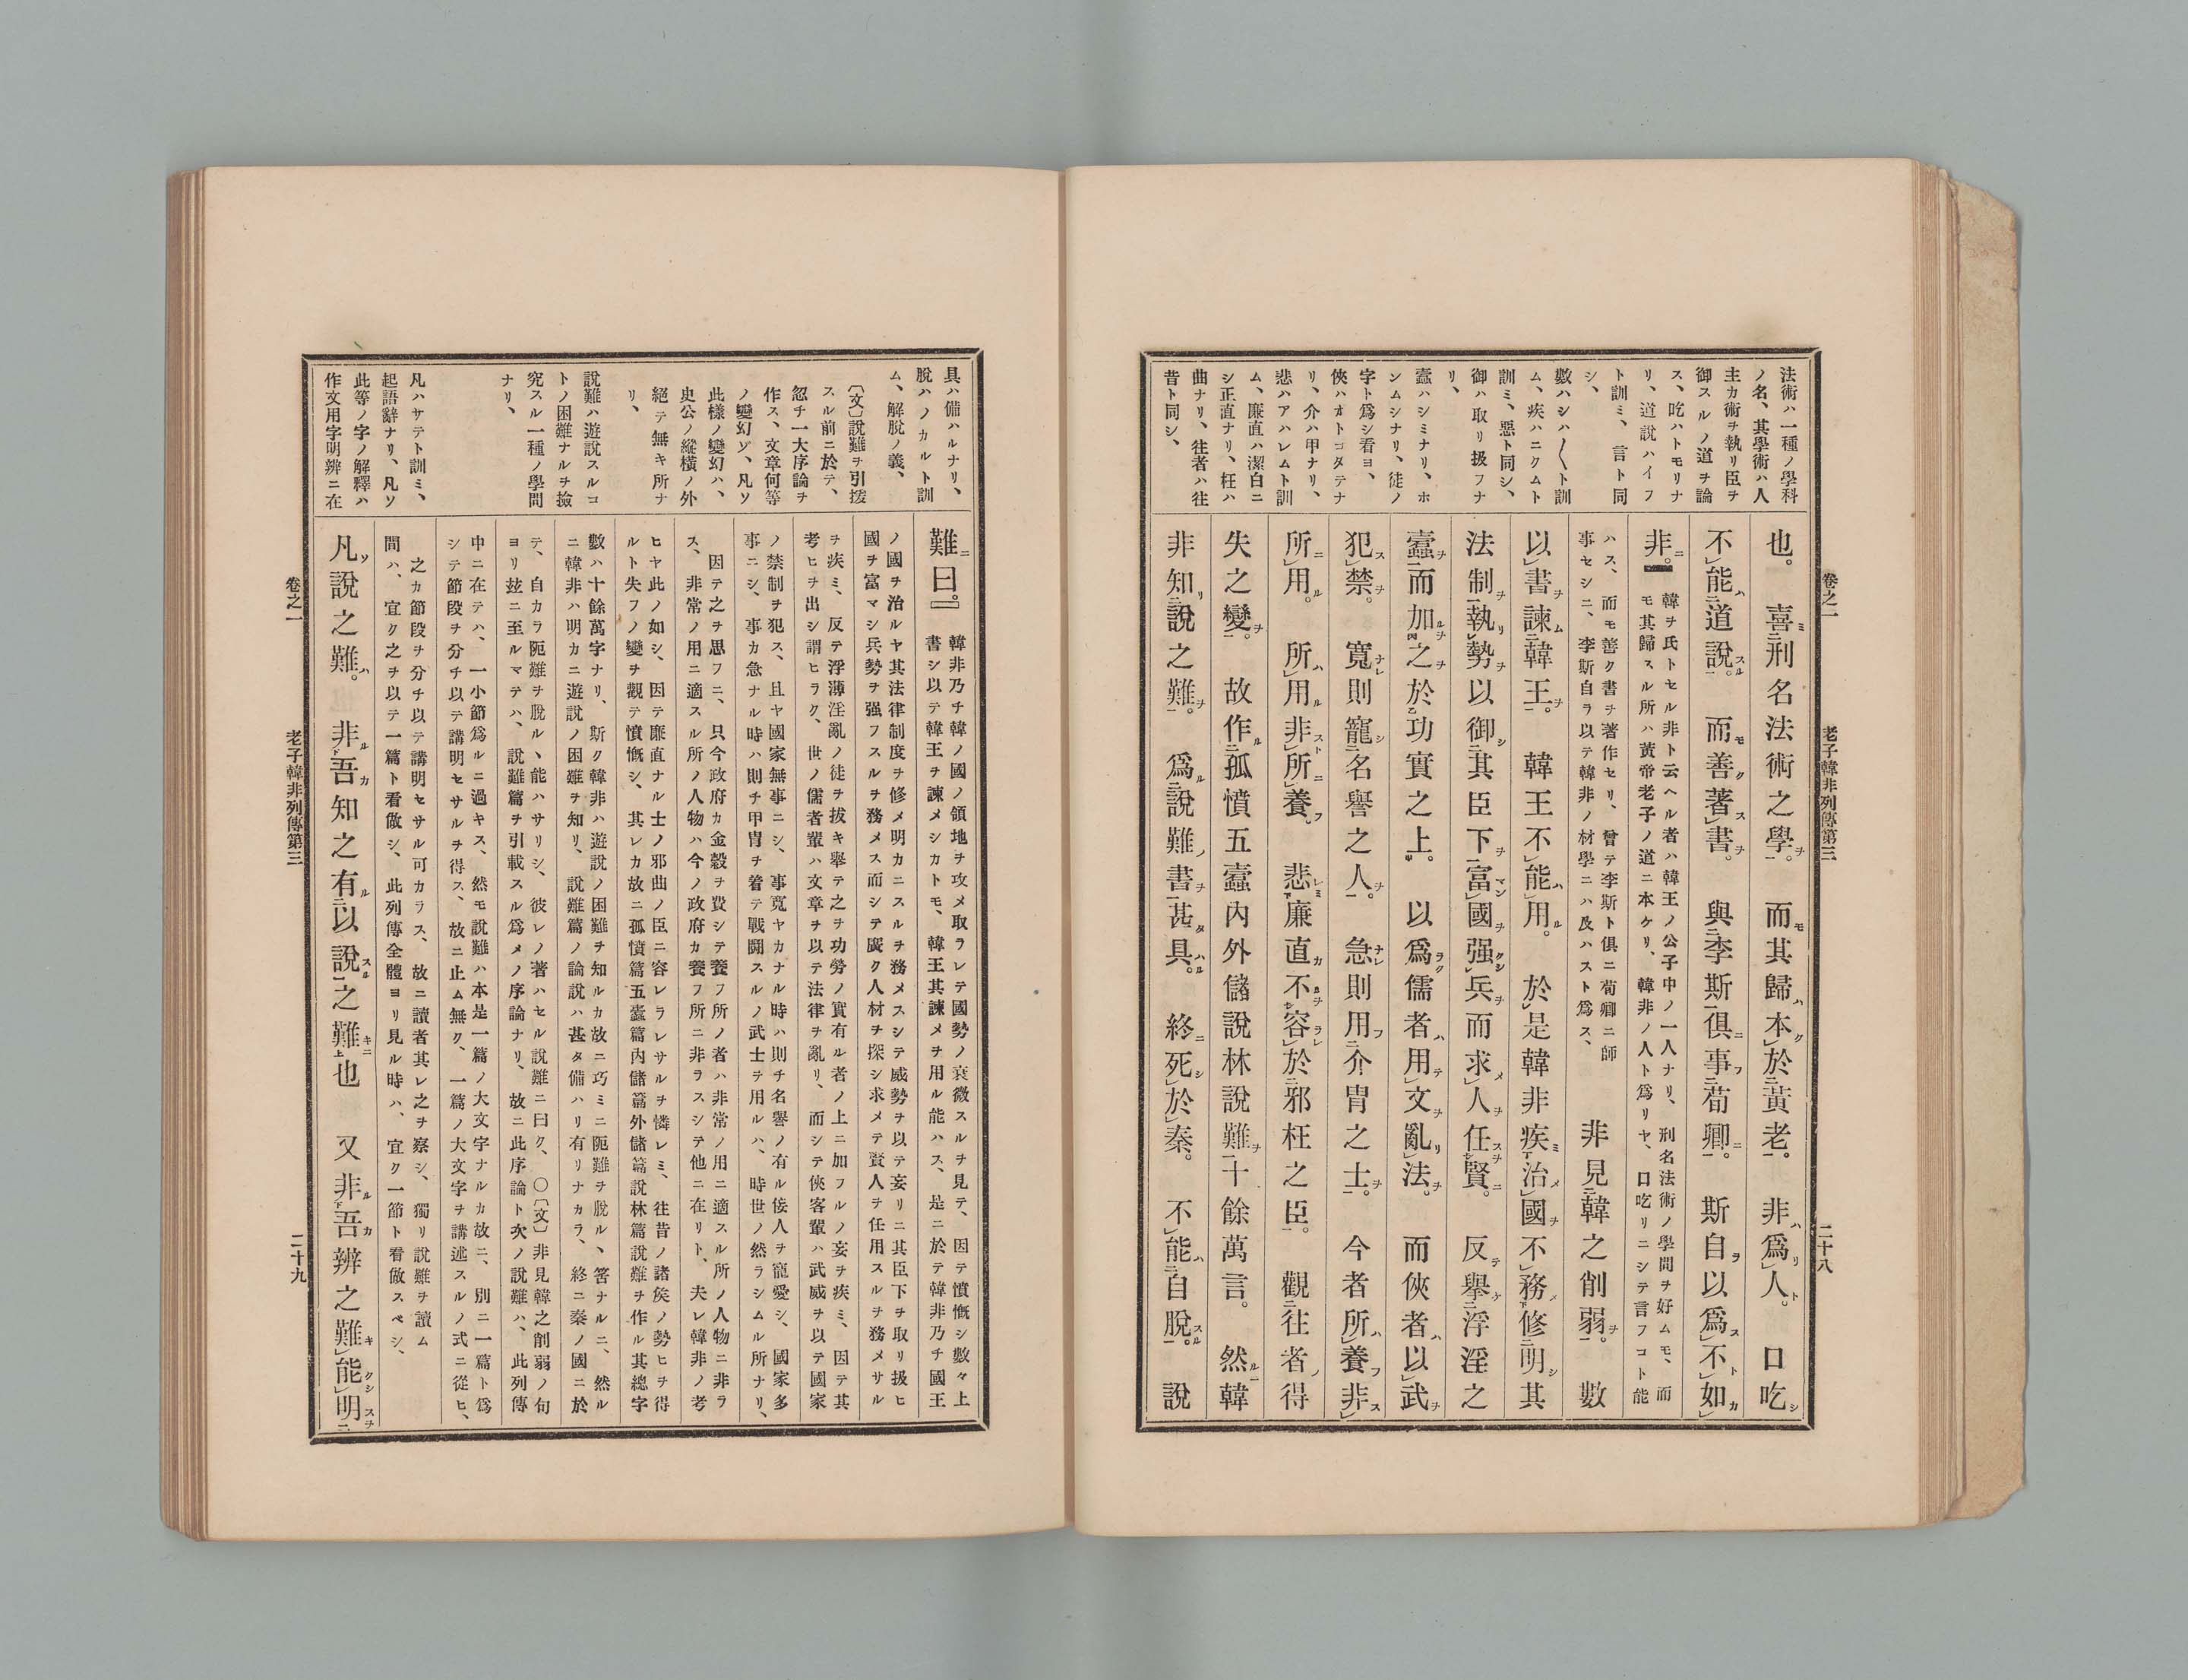 卷之一　老子韓非列傳第三　二十八
法術ハ一種ノ學科
ノ名、其學術ハ人
主カ術ヲ執リ臣ヲ
御スルノ道ヲ論
ス、吃ハトモリナ
リ、道説ハイフ
ト訓ミ、言ト同
シ、
數ハシハ〱ト訓
ム、疾ハニクムト
訓ミ、惡ト同シ、
御ハ取リ扱フナ
リ、
蠧ハシミナリ、ホ
ンムシナリ、徒ノ
字ト爲シ看ヨ、
俠ハオトコダテナ
リ、介ハ甲ナリ、
悲ハアハレムト訓
ム、廉直ハ潔白ニ
シ正直ナリ、枉ハ
曲ナリ、往者ハ往
昔ト同シ、
也。喜ミ二刑名法術之學ヲ一。而モ其歸ハ本ク二於黃老一。非ハ爲リ人ト。口吃シ
不レ能ハ二道說スル一。而モ善ク著ス書ヲ。與二李斯一俱ニ事フ二荀卿ニ一。斯自ヲ以爲ス不ト如カ
非ニ。韓ヲ氏トセル非ト云ヘル者ハ韓王ノ公子中ノ一人ナリ、刑名法術ノ學問ヲ好ムモ、而
モ其歸スル所ハ黃帝老子ノ道ニ本ケリ、韓非ノ人ト爲リヤ、口吃リニシテ言フコト能
ハス、而モ善ク書ヲ著作セリ、曾テ李斯ト俱ニ荀卿ニ師
事セシニ、李斯自ラ以テ韓非ノ材學ニハ及ハスト爲ス、
非見二韓之削弱ヲ一。數
以書ヲ諫ム二韓王ヲ一。韓王不能ハ用ル。於是韓非疾ミ下治メ國ヲ不務メ下修二明シ其
法制ヲ一執リ勢ヲ以御シ二其臣下ヲ一富マシ國ヲ强クシ兵ヲ而求メ人ヲ任スヲ賢ニ。反テ擧ケ二浮淫之
蠧ヲ一而加ルヲ之ヲ於功實之上。以爲ラク儒者ハ用テ文ヲ亂リ法ヲ。而俠者ハ以武ヲ
犯ス禁ヲ。寬ナレ則寵シ二名譽之人ヲ一。急ナレ則用フ二介胄之士ヲ一。今者所ハ養フ非ス
所ニ用ル。所ハ用ル非スト所ニ養フ。悲レミ廉直カ不ヲ容ラレ於二邪枉之臣一。觀二往者ノ得
失之變ヲ一。故作ル二孤憤五蠧內外儲說林說難ヲ一十餘萬言。然ルニ韓
非知リ二說之難ヲ一。爲ル二說難ノ書ヲ一甚タ具ハル。終ニ死シ於秦。不能ハ二自脫スル一。說
卷之一　老子韓非列傳第三　二十九
具ハ備ハルナリ、
脫ハノカルト訓
ム、解脫ノ義、
〔文〕說難ヲ引援
スル前ニ於テ、
忽チ一大序論ヲ
作ス、文章何等
ノ變幻ゾ、凡ソ
此樣ノ變幻ハ、
史公ノ縱橫ノ外
絕テ無キ所ナ
リ、
說難ハ遊說スルコ
トノ困難ナルヲ撿
究スル一種ノ學問
ナリ、
凡ハサテト訓ミ、
起語辭ナリ、凡ソ
此等ノ字ノ解釋ハ
作文用字明辨ニ在
難ニ曰。韓非乃チ韓ノ國ノ領地ヲ攻メ取ラレテ國勢ノ衰微スルヲ見テ、因テ憤慨シ數々上
書シ以テ韓王ヲ諫メシカトモ、韓王其諫メヲ用ル能ハス、是ニ於テ韓非乃チ國王
ノ國ヲ治ルヤ其法律制度ヲ修メ明カニスルヲ務メスシテ威勢ヲ以テ妄リニ其臣下ヲ取リ扱ヒ
國ヲ富マシ兵勢ヲ强フスルヲ務メス而シテ廣ク人材ヲ探シ求メテ賢人ヲ任用スルヲ務メサル
ヲ疾ミ、反テ浮薄淫亂ノ徒ヲ拔キ擧テ之ヲ功勞ノ實有ル者ノ上ニ加フルノ妄ヲ疾ミ、因テ其
考ヒヲ出シ謂ヒラク、世ノ儒者輩ハ文章ヲ以テ法律ヲ亂リ、而シテ俠客輩ハ武威ヲ以テ國家
ノ禁制ヲ犯ス、且ヤ國家無事ニシ、事寬ヤカナル時ハ則チ名譽ノ有ル倿人ヲ寵愛シ、國家多
事ニシ、事カ急ナル時ハ則チ甲胄ヲ着テ戰鬪スルノ武士テ用ルハ、時世ノ然ラシムル所ナリ、
因テ之ヲ思フニ、只今政府カ金穀ヲ費シテ養フ所ノ者ハ非常ノ用ニ適スル所ノ人物ニ非ラ
ス、非常ノ用ニ適スル所ノ人物ハ今ノ政府カ養フ所ニ非ラスシテ他ニ在リト、夫レ韓非ノ考
ヒヤ此ノ如シ、因テ廉直ナル士ノ邪曲ノ臣ニ容レラレサルヲ憐レミ、往昔ノ諸矦ノ勢ヒヲ得
ルト失フノ變ヲ觀テ憤慨シ、其レカ故ニ孤憤篇五蠧篇內儲篇外儲篇說林篇說難ヲ作ル其總字
數ハ十餘萬字ナリ、斯ク韓非ハ遊說ノ困難ヲ知ルカ故ニ巧ミニ阨難ヲ脫ルヽ筈ナルニ、然ル
ニ韓非ハ明カニ遊說ノ困難ヲ知リ、說難篇ノ論說ハ甚タ備ハリ有リナカラ、終ニ秦ノ國ニ於
テ、自カラ阨難ヲ脫ルヽ能ハサリシ、彼レノ著ハセル說難ニ曰ク、〇〔文〕非見韓之削弱ノ句
ヨリ玆ニ至ルマテハ、說難篇ヲ引載スル爲メノ序論ナリ、故ニ此序論ト次ノ說難ハ、此列傳
中ニ在テハ、一小節爲ルニ過キス、然モ說難ハ本是一篇ノ大文字ナルカ故ニ、別ニ一篇ト爲
シテ節段ヲ分チ以テ講明セサルヲ得ス、故ニ止ム無ク、一篇ノ大文字ヲ講述スルノ式ニ從ヒ、
之カ節段ヲ分チ以テ講明セサル可カラス、故ニ讀者其レ之ヲ察シ、獨リ說難ヲ讀ム
間ハ、宜ク之ヲ以テ一篇ト看倣シ、此列傳全體ヨリ見ル時ハ、宜ク一節ト看倣スベシ、
凡ソ說之難ハ。非ル下吾カ知之有ル二以說スル一之難キニ上也　又非ル下吾カ辨之難キ能クシ明スヲ二